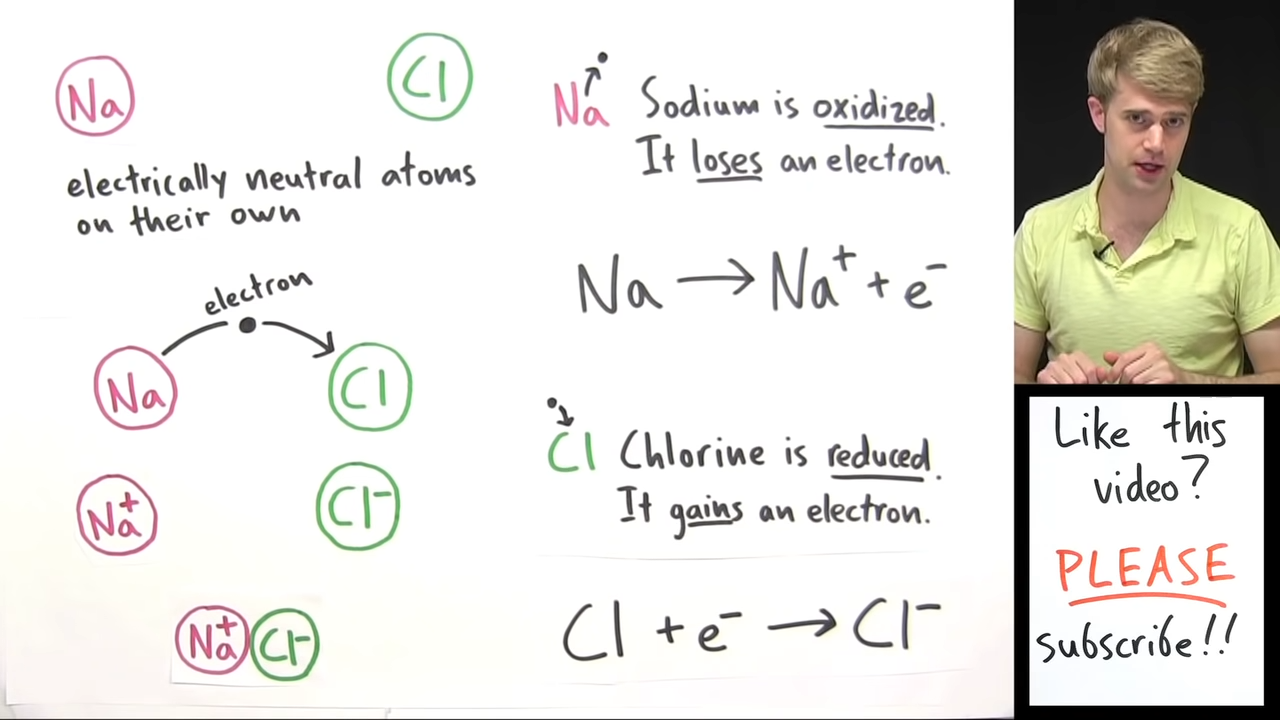 Na
Cl
electrically neutral atoms
on their own
electron
Na
Cl
Na⁺
Cl⁻
Na⁺ Cl⁻
Na Sodium is oxidized.
It loses an electron.
Na → Na⁺ + e⁻
Cl Chlorine is reduced.
It gains an electron.
Cl + e⁻ → Cl⁻
Like this
video?
PLEASE
subscribe!!